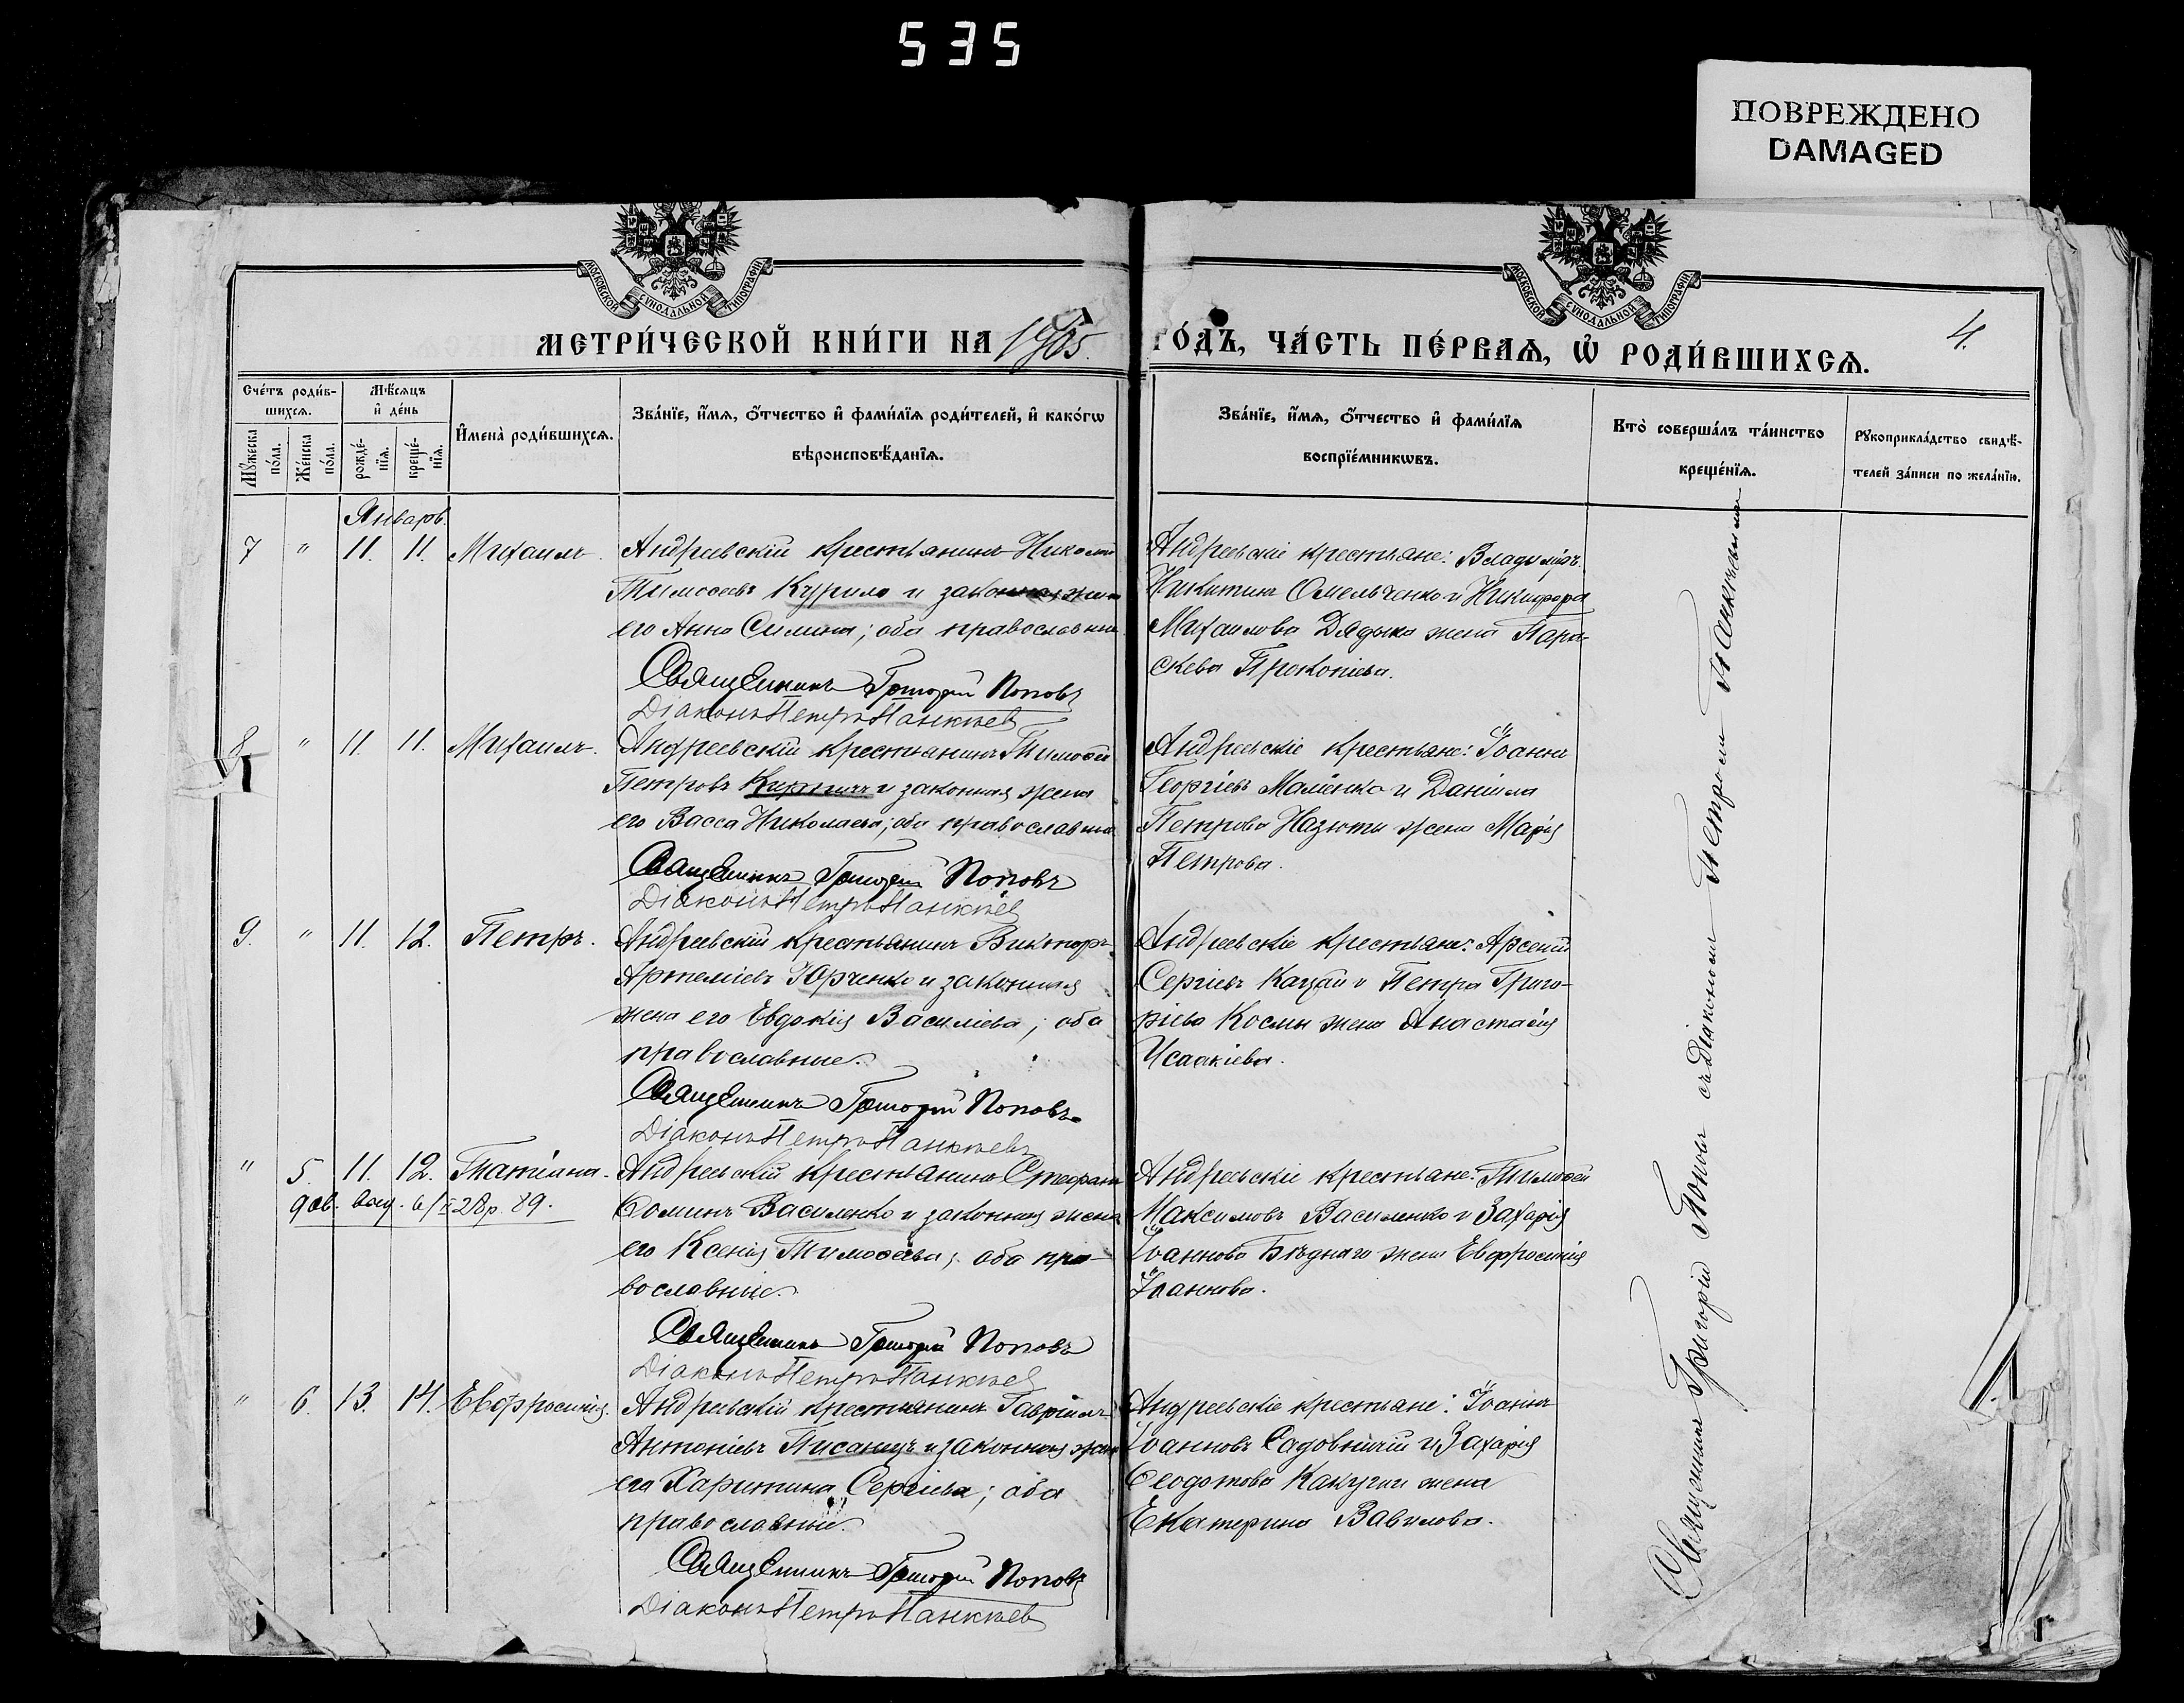 535
ПОВРЕЖДЕНО
DAMAGED
МОСКОВСКОЙ СУНОДАЛЬНОЙ ТИПОГРАФІИ
МОСКОВСКОЙ СУНОДАЛЬНОЙ ТИПОГРАФІИ
МЕТРИ́ЧЕСКОЙ КНИ́ГИ НА 1905
ГО́ДЪ, ЧА́СТЬ ПЕ́РВАѦ, Ѡ҆ РОДИ́ВШИХСѦ.
4.
Сче́тъ роди́в-
шихсѧ.
Мꙋ́жеска по́ла.
Же́нска по́ла.
Мѣ́сѧцъ
и҆ де́нь
рожде́-
нїѧ.
креще́-
нїѧ.
И҆мена̀ роди́вшихсѧ.
Зва́нїе, и҆́мѧ, ѻ҆́тчество и҆ фами́лїѧ роди́телей, и҆ како́гѡ
вѣроисповѣ́данїѧ.
Зва́нїе, и҆́мѧ, ѻ҆́тчество и҆ фами́лїѧ
воспрїе́мникѡвъ.
Кто̀ соверша́лъ та́инство
креще́нїѧ.
Рꙋкоприкла́дство свидѣ́-
телей за́писи по жела́нїю.
Январь.
7 " 11. 11. Михаилъ. Андреевскій крестьянинъ Николай
Тимоѳеевъ Курило и законная жена
его Анна Симина; оба православные
Священникъ Григорій Поповъ
Діаконъ Петръ Панкѣев
Андреевскіе крестьяне: Владиміръ
Никитинъ Омельченко и Никифора
Михаилова Дядыка жена Пара-
скева Прокопіева.
8 " 11. 11. Михаилъ. Андреевскій крестьянинъ Тимоѳей
Петровъ Кирпичъ и законная жена
его Васса Николаева; оба православные
Священникъ Григорій Поповъ
Діаконъ Петръ Панкѣев
Андреевскіе крестьяне: Іоаннъ
Георгіевъ Маліенко и Даніила
Петрова Назюты жена Марія
Петрова.
9. " 11. 12. Петръ. Андреевскій крестьянинъ Викторъ
Артеміевъ Юрченко и законная
жена его Евдокія Василіева; оба
православные.
Священникъ Григорій Поповъ
Діаконъ Петръ Панкѣевъ
Андреевскіе крестьяне: Арсеній
Сергіевъ Кацай и Петра Григо-
ріева Космы жена Анастасія
Исаакіева.
" 5. 11. 12. Татіана. Андреевскій крестьянинъ Стефанъ
Ѳоминъ Василенко и законная жена
его Ксенія Тимоѳеева; оба пра-
вославные.
Священникъ Григорій Поповъ
Діаконъ Петръ Панкѣев
Андреевскіе крестьяне: Тимоѳей
Максимовъ Василенко и Захарія
Іоаннова Бѣднаго жена Евфросинія
Іоаннова.
" 6. 13. 14. Евфросинія. Андреевскій крестьянинъ Гавріилъ
Антоніевъ Писанецъ и законная жена
его Харитина Сергіева; оба
православные.
Священникъ Григорій Поповъ
Діаконъ Петръ Панкѣев
Андреевскіе крестьяне: Іоаннъ
Іоанновъ Садовничій и Захарія
Ѳеодотова жена
Екатерина Вавилова.
Священникъ Григорій Поповъ съ Діакономъ Петромъ Панкѣевымъ